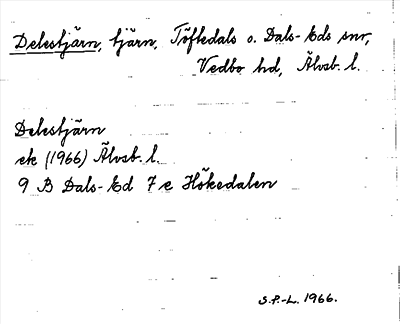 Delestjärn, tjärn, Töftedals o. Dals-Eds snr,
Vedbo hd, Älvsb. l.
Delestjärn
ek (1966) Älvsb. l.
9 B Dals-Ed 7 e Hökedalen
S.P.-L. 1966.